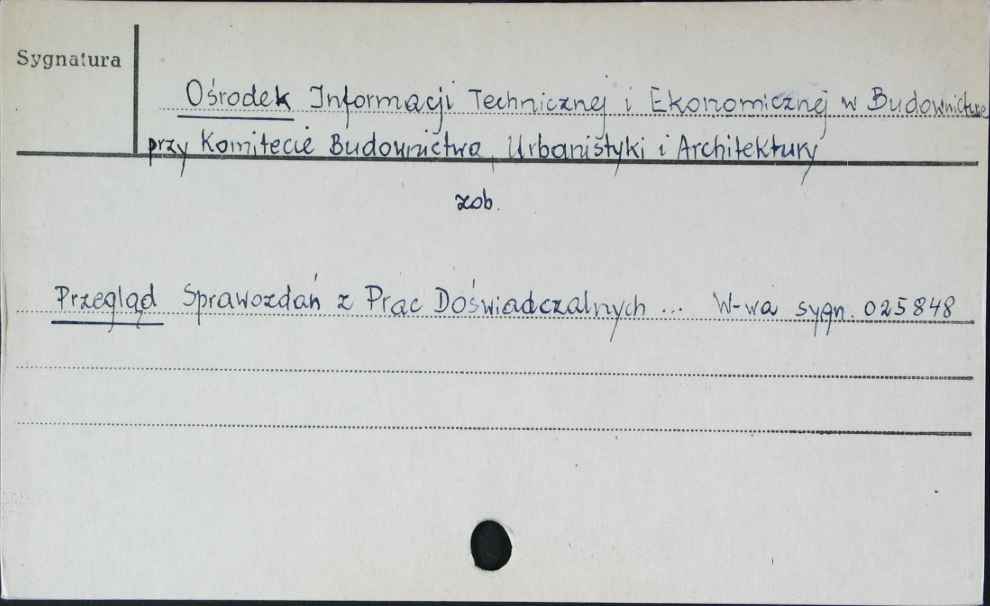 Sygnatura
Ośrodek Informacji Technicznej i Ekonomicznej w Budownictwie
przy Komitecie Budownictwa, Urbanistyki i Architektury
zob.
Przegląd Sprawozdań z Prac Doświadczalnych ... W-wa sygn. 025848